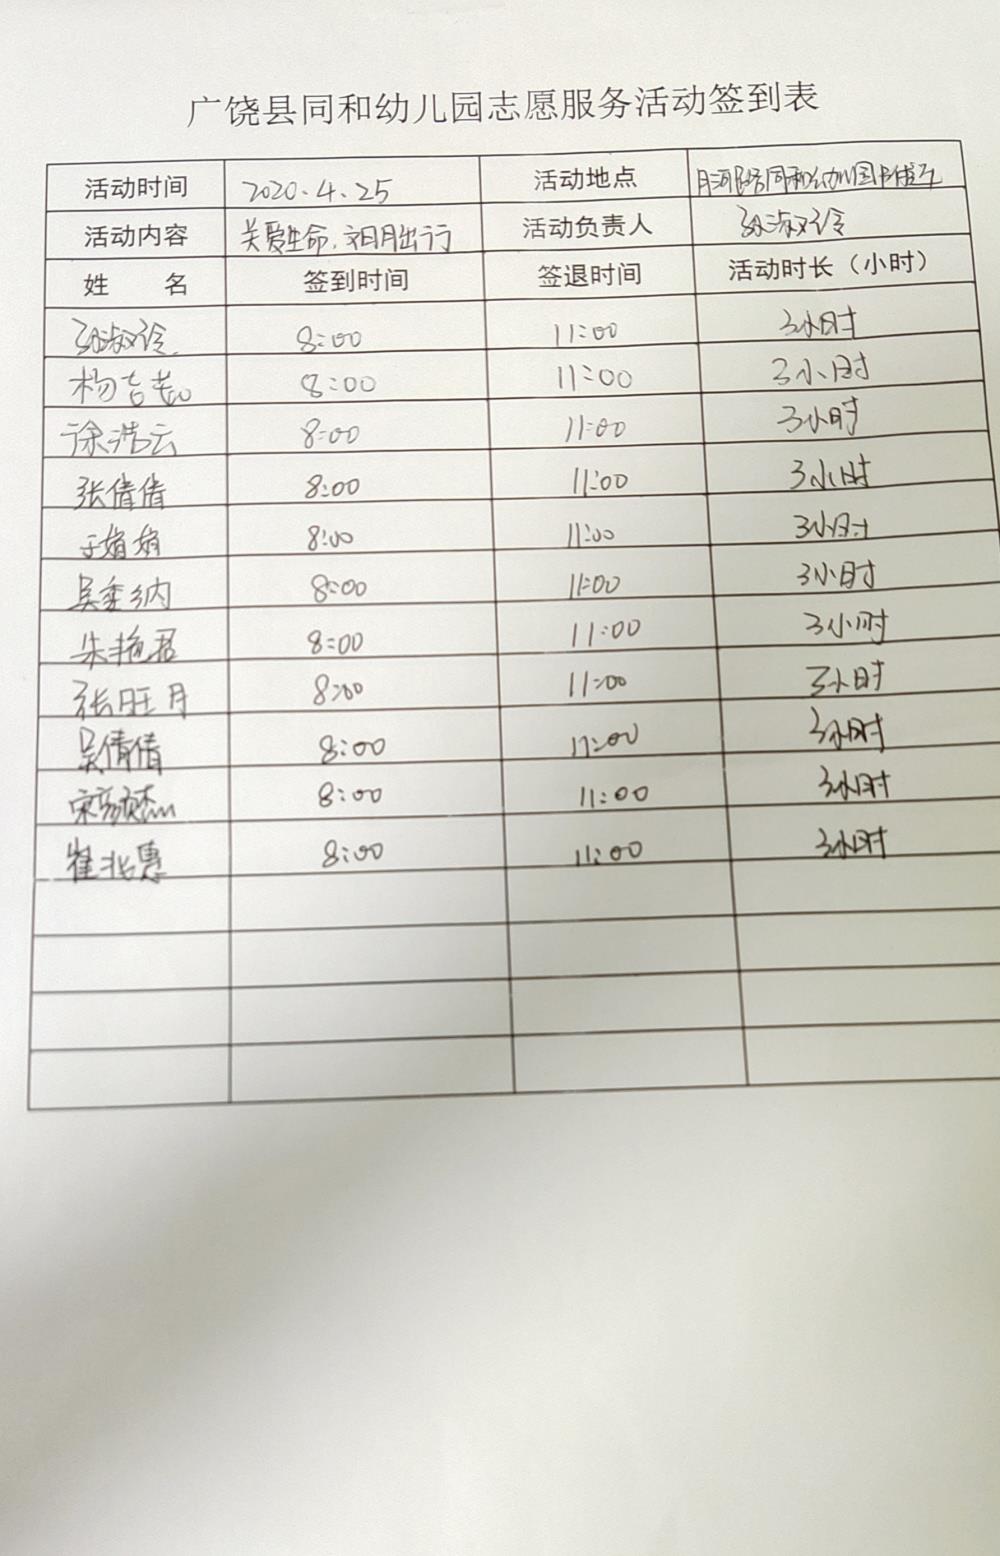 广饶县同和幼儿园志愿服务活动签到表
活动时间 2020.4.25 活动地点 月河路与同和幼儿园
活动内容 关爱生命,文明出行 活动负责人 孙淑玲
姓 名 签到时间 签退时间 活动时长(小时)
孙淑玲 8:00 11:00 3小时
杨吉 8:00 11:00 3小时
徐浩云 8:00 11:00 3小时
张倩倩 8:00 11:00 3小时
于娟娟 8:00 11:00 3小时
吴 8:00 11:00 3小时
朱艳君 8:00 11:00 3小时
张旺月 8:00 11:00 3小时
吴倩倩 8:00 11:00 3小时
宋 8:00 11:00 3小时
崔兆惠 8:00 11:00 3小时